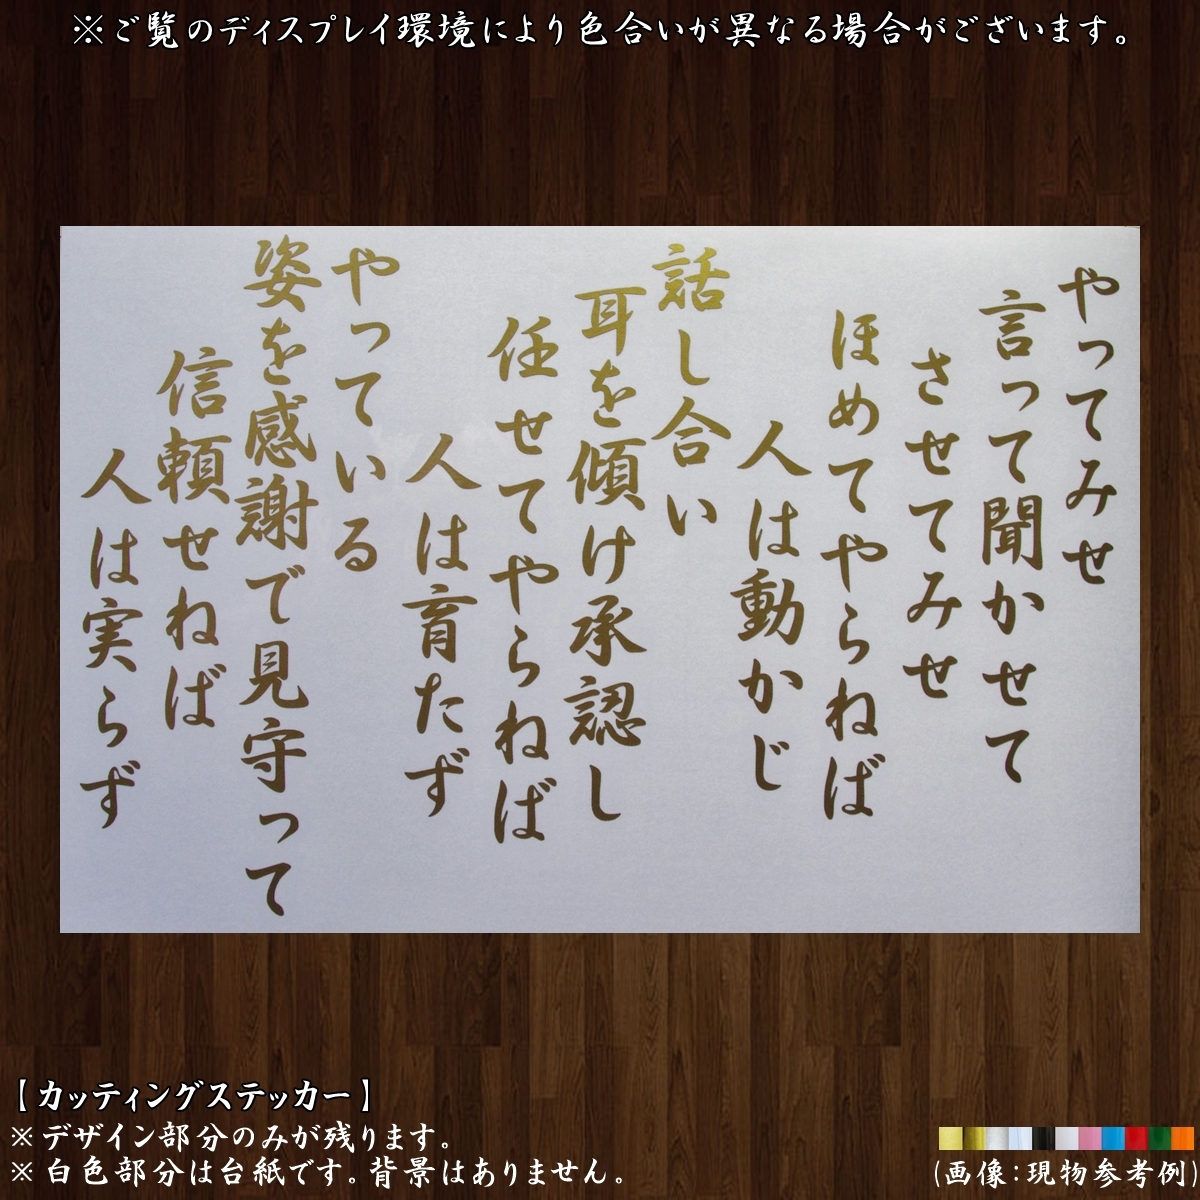 ※ご覧のディスプレイ環境により色合いが異なる場合がございます。
やってみせ
言って聞かせて
させてみせ
ほめてやらねば
人は動かじ
話し合い
耳を傾け承認し
任せてやらねば
人は育たず
やっている
姿を感謝で見守って
信頼せねば
人は実らず
【カッティングステッカー】
※デザイン部分のみが残ります。
※白色部分は台紙です。背景はありません。
(画像:現物参考例)